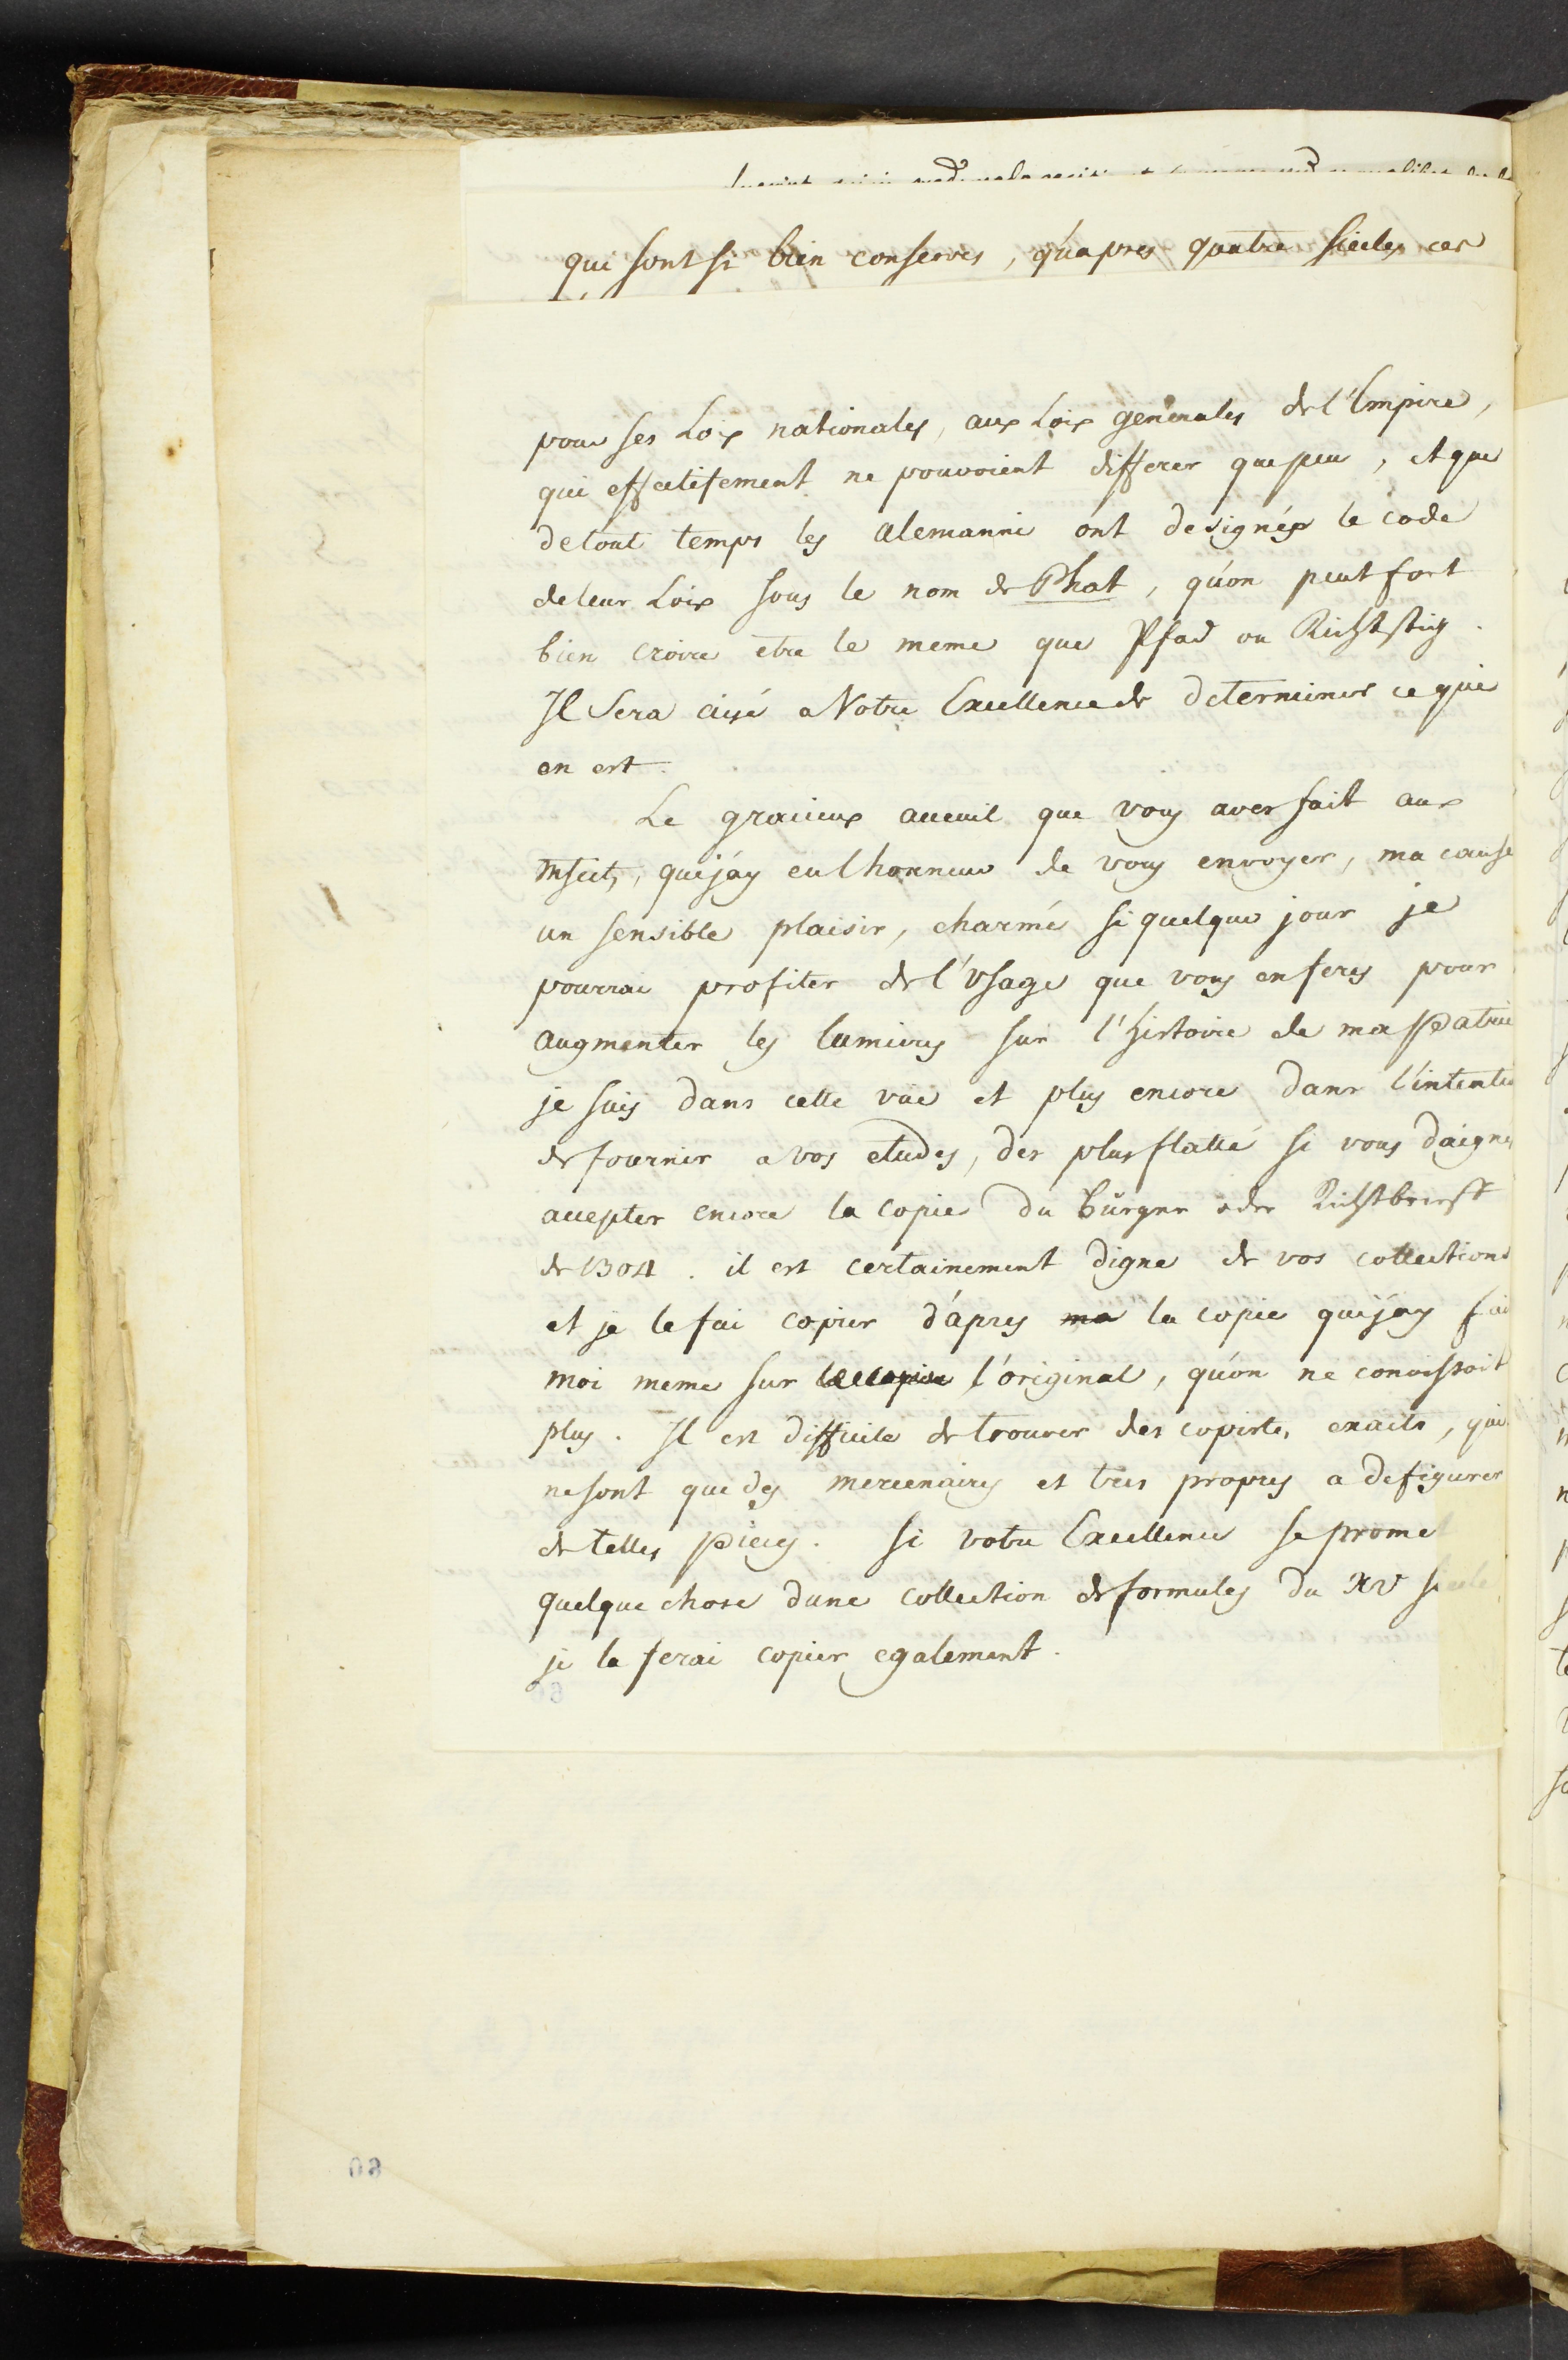 qui sont si bien conserves, qu'apres quatre siecles ces
pour ses Loix nationales, aux Loix generales de l'Empire,
qui effectifement ne pouvoient differer que peu, et que
de tout temps les Alemanni ont designés le code
de leur Loix sous le nom de Phat, qu'on peut fort
bien croire etre le meme que Pfad ou Richtstig.
Il sera aisé a Votre Excellence de determiner ce qui
en est.
Le gracieux acceuil que vous aves fait aux
Mscts, que j'ay eu lhonneur de vous envoyer, ma cause
un sensible plaisir, charmé si quelque jour je
pourrai profiter de l'Usage que vous en feres pour
augmenter les lumieres sur l'histoire de ma Patrie
je suis dans cette vüe et plus encore dans l'intentio
de fournir a vos etudes, des plus flatté si vous daignes
accepter encore la copie du Bürger oder Richtbrieff
de 1304. il est certainement digne de vos collections
et je le fai copier d'apres ma la copie que j'ay fai
moi meme sur l'original, qu'on ne conoissoit
plus. Il est difficile de trouver des copistes exacts, qui
ne sont que des mercenaires et tres propres a defigurer
de telles pieces. Si votre Excellence se promet
quelque chose dune collection de formules du XV siecle
je la ferai copier egalement.
60